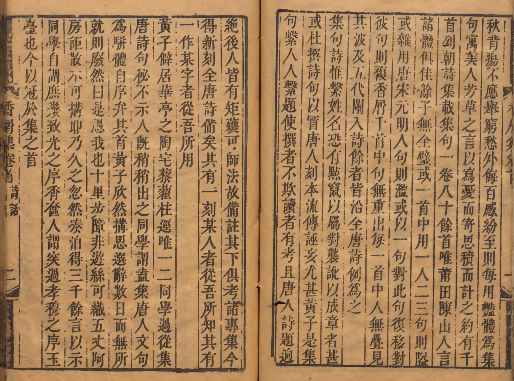 秋背暢不應舉窮愁外侮百感紛至則每用豔體為集
句寓美人芳草之言以寫憂而寄思積而計之約有千
首列朝詩集載集句一卷八十餘首唯莆田陳山人言
諸體俱佳餘子無全璧或一首中用一人二三句則隘
或雜用唐宋元明人句則濫或以一句對此句復移對
彼句則複香屑千首中句無重出每一首中人無疊見
其波及五代閒入詩餘者皆沿全唐詩例為之
集句詩惟繫姓名恐有點竄以屬對襲訛以成章者甚
或杜撰詩句以冒唐人刻本流傳誣妄尤甚黃子是集
句繫人人繫題使撰者不欺讀者有考且唐人詩題過
絶後人皆有矩矱可師法故備註其下俱考諸專集今
得新刻全唐詩備矣其有一刻某人者從吾所知其有
一作某字者從吾所用
黃子僻居華亭之陶宅藜藿柱逕唯一二同學過從集
唐詩句祕不示人旣稍稍出之同學謂蓋集唐人文句
為駢體自序弁其首黃子欣然搆思選辭數日而無所
就則廢然曰是愚我也十里步障非遊絲可織五丈阿
房詎散木可搆耶乃久之忽然湊泊得三千餘言以示
同學自謂庶幾致光之序香奩人謂突過孝穆之序玉
臺也今以冠於集之首
香屑集卷首 詩話
二